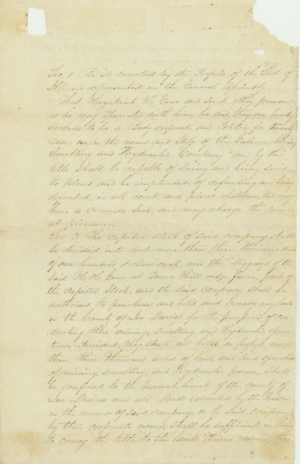 Sec 1 Be it enacted by the People of the State of
Illinois represented in the General Assembly
That Hezekiah H. Gear and such other persons
as he may associate with him be and they are hereby
declared to be a Body corporate and Politic for twenty
years under the name and style of the Galena Mining
Smelting and Hydraulic Company and by the
title shall be capable of suing and being sued
to plead and be impleaded of defending and being
defended, in all courts and places whatever and may
have a common Seal and may change the same
at pleasure
Sec 2 The Capital stock of said company shall
be divided into not more than three thousand shares
of one hundred dollars each and the Diggings of the
said H. H. Gear at may form part of
the Capital Stock, and the said company shall be
authorised to purchase and hold and
in the County of Jo Daviess for the purpose of con
ducting their mining, smelting and Hydraulic opera
tions Provided they shall not hold or possess more
than three thousand acres of land, and said operation
of mining smelting and Hydraulic power, shall
be confined to the present limits of the county of
Joe Daviess and all deeds executed by the
in the name of said company or to said company
by their corporate name shall be sufficient in law
to convey the title to the land therein